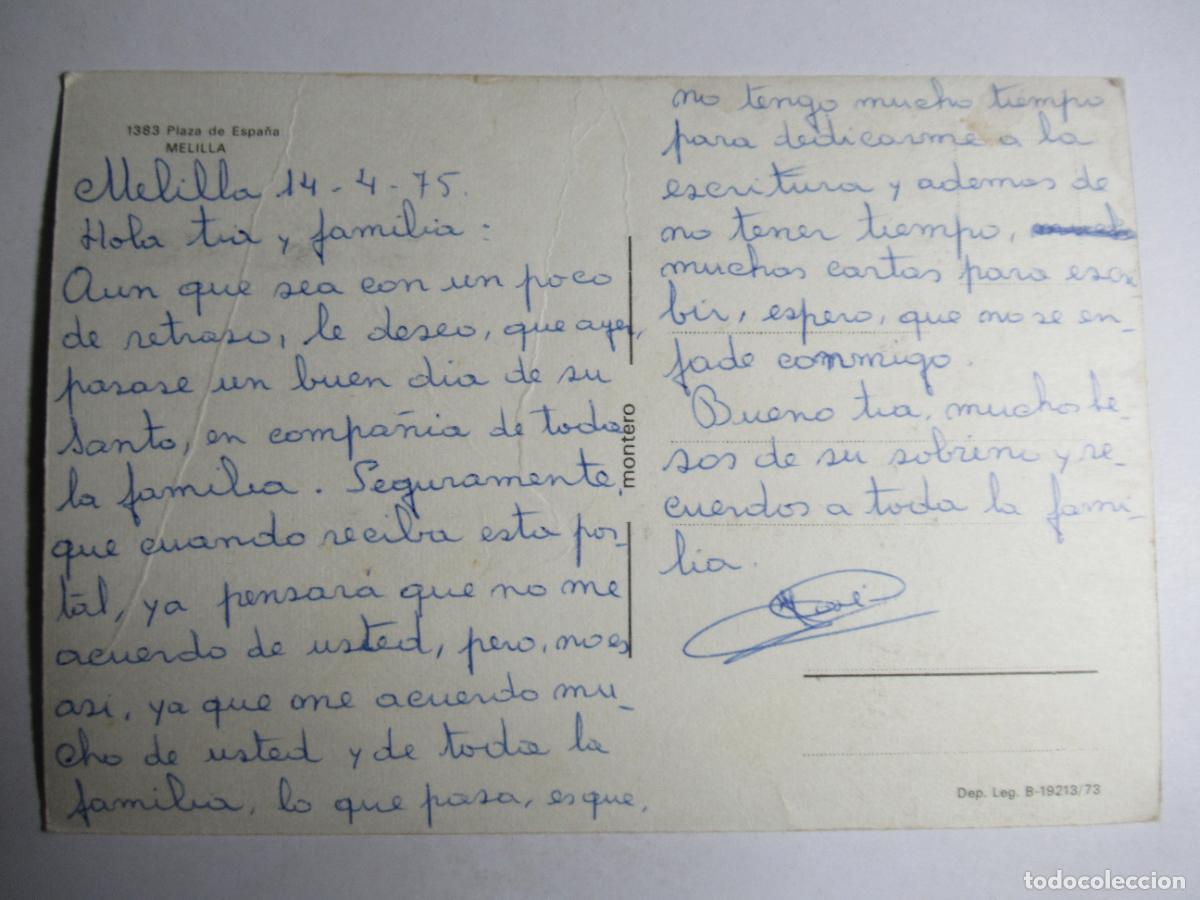 1383 Plaza de España
MELILLA
Melilla 14-4-75.
Hola tia y familia:
Aun que sea con un poco
de retraso, le deseo, que ayer,
pasase un buen dia de su
Santo, en compañia de toda
la familia. Seguramente,
que cuando reciba esta pos-
tal, ya pensará que no me
acuerdo de usted, pero, no es
asi, ya que me acuerdo mu-
cho de usted y de toda la
familia, lo que pasa, es que,
no tengo mucho tiempo
para dedicarme a la
escritura y ademas de
no tener tiempo,
muchas cartas para escri
bir, espero, que no se en-
fade conmigo.
Bueno tia, muchos be-
sos de su sobrino y re-
cuerdos a toda la fami-
lia.
montero
Dep. Leg. B-19213/73
todocoleccion